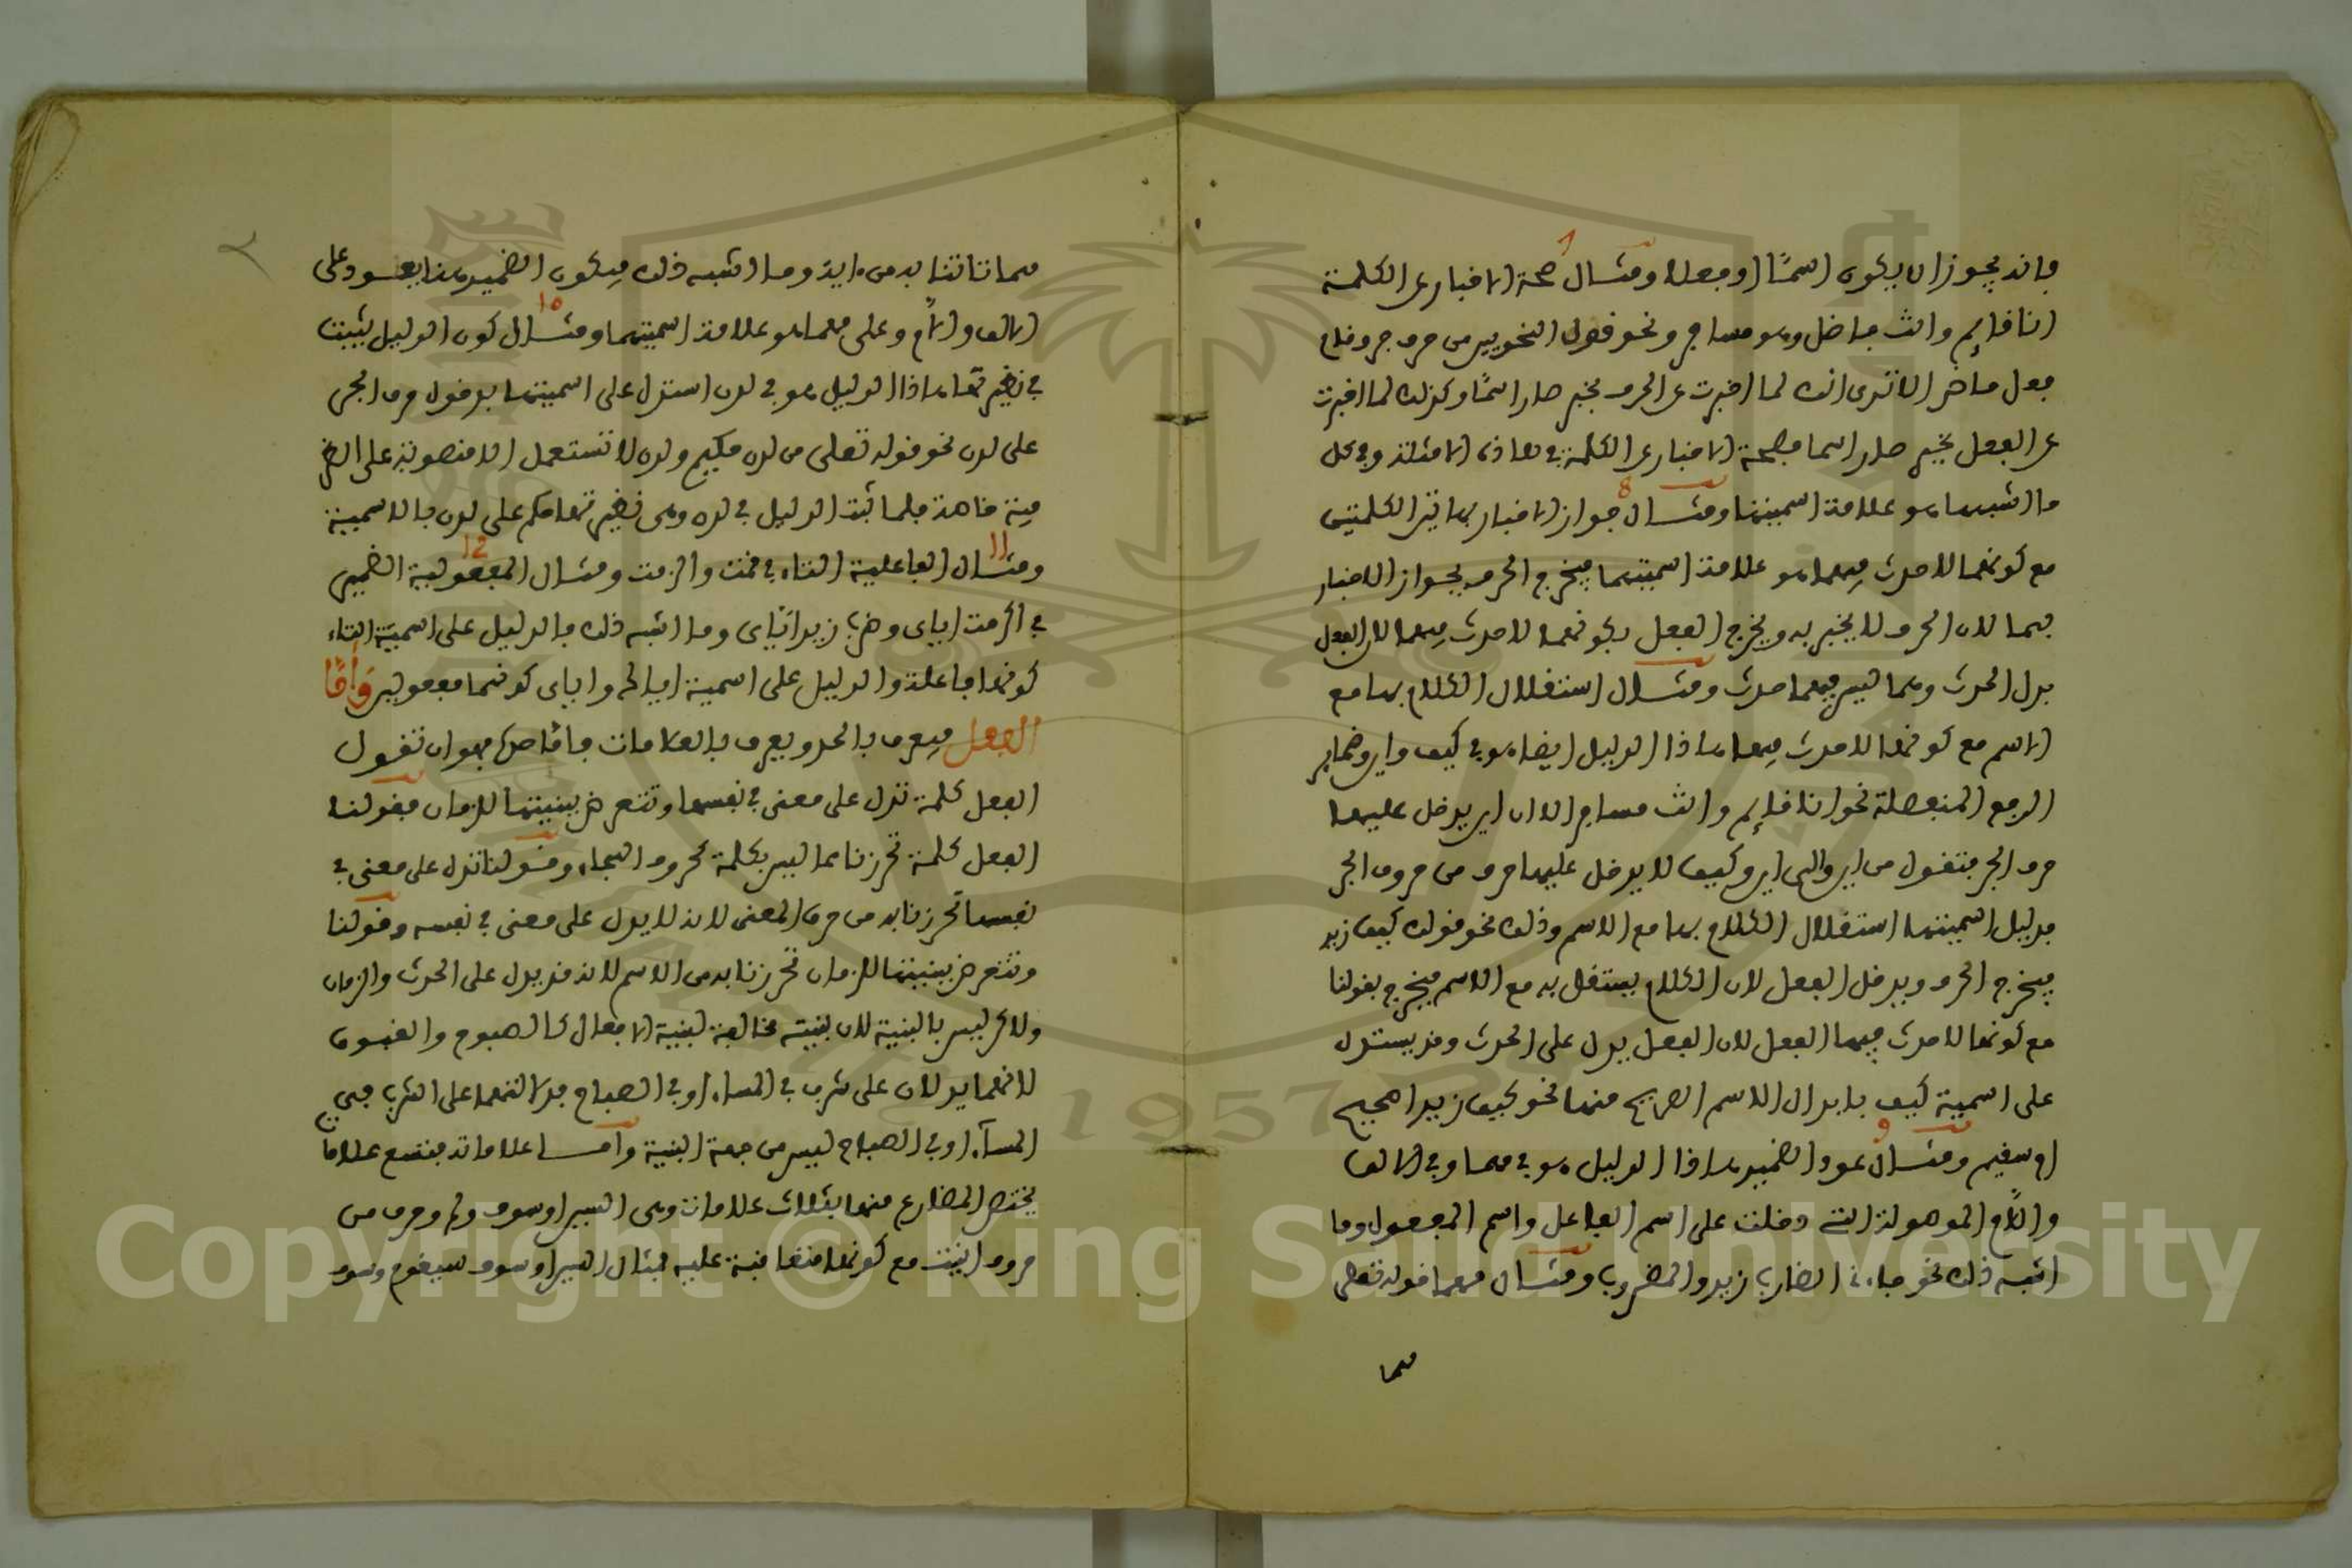 فانه يجوز ان يكون اسمًا او فعلا ومثال صحة الاخبار عن الكلمة
انا قائم وانت فاضل وهو مسافر ونحو قول النحويين من حرف جر وقام
فعل ماض الا ترى انك لما اخبرت عن الحرف بخبر صار اسمًا وكذلك لما اخبرت
عن الفعل بخبر صار اسما فصحة الاخبار عن الكلمة في هاذه الامثلة وفي كل
ما اشبهها هو علامة اسميتها ومثال جواز الاخبار بهاتين الكلمتين
مع كونهما لا حدث فيهما هو علامة اسميتهما فيخرج الحرف بجواز الاخبار
بهما لان الحرف لا يخبر به ويخرج الفعل بكونهما لا حدث فيهما لان الفعل
يدل الحدث وهما ليس فيهما حدث ومثال استقلال الكلام بها مع
الاسم مع كونها لا حدث فيها هاذا الدليل ايضا هو في كيف واين وضماير
الرفع المنفصلة نحو انا قائم وانت مسافر الا ان اين يدخل عليها
حرف الجر فتقول من اين والى اين وكيف لا يدخل عليها حرف من حروف الجر
فدليل اسميتها استقلال الكلام بها مع الاسم وذلك نحو قولك كيف زيد
فيخرج الحرف ويدخل الفعل لان الكلام يستقل به مع الاسم فيخرج بقولنا
مع كونها لا حدث فيها الفعل لان الفعل يدل على الحدث وقد يستدل
على اسمية كيف بابدال الاسم الصريح منها نحو كيف زيد اصحيح
ام سقيم ومثال عود الضمير هاذا الدليل هو في مهما وفي الالف
واللام الموصولة التي دخلت على اسم الفاعل واسم المفعول وما
اشبه ذلك نحو جاءني الضارب زيد والمضروب ومثال مهما قوله تعلى
مهما
مهما تاتنا به من اية وما اشبه ذلك فيكون الضمير هنا يعود على
الالف واللام وعلى مهما هو علامة اسميتهما ومثال كون الدليل يثبت
في نظيرتها هاذا الدليل هو في لدن استدل على اسميتها بدخول حرف الجر
على لدن نحو قوله تعلى من لدن حكيم ولدن لا تستعمل الا منصوبة على الظر
فية خاصة فلما ثبت الدليل في لدن وهي نظيرتها حكم على لدن بالاسمية
ومثال الفاعلية التاء في قمت واكرمت ومثال المفعولية الضمير
في اكرمت اياي وضرب زيد اياي وما اشبه ذلك فالدليل على اسمية التاء
كونها فاعلة والدليل على اسمية اياك واياي كونهما مفعولين وأمّا
الفعل فيعرف بالحد ويعرف بالعلامات فاما حده فهو ان تقول
الفعل كلمة تدل على معنى في نفسها وتتعرض ببنيتها للزمان فقولنا
الفعل كلمة تحرزنا مما ليس بكلمة كحروف الهجاء وقولنا تدل على معنى في
نفسها تحرزنا به من حرف المعنى لانه لا يدل على معنى في نفسه وقولنا
وتتعرض ببنيتها للزمان تحرزنا به من الاسم لانه قد يدل على الحدث والزمان
ولاكن ليس بالبنية لان بنيته مخالفة لبنية الافعال كالصبوح والغبوق
لانهما يدلان على شرب في المساء او في الصباح فدلالتهما على الشرب في
المسآء او في الصباح ليس من جهة البنية وامــا علاماته فتسع علامات
يختص المضارع منها بثلاث علامات وهي السين او سوف ولم وحرف من
حروف انيت مع كونها متعاقبة عليه فمثال السين او سوف سيقوم وسوف